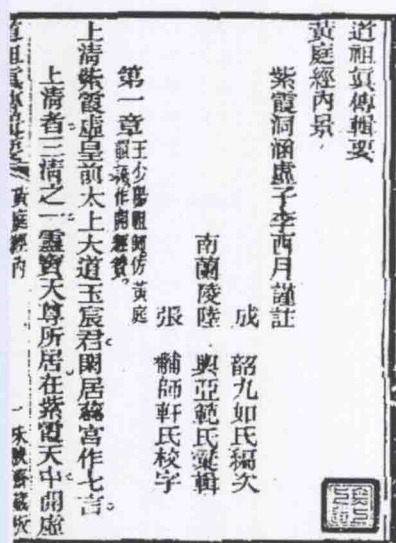 道祖真傳輯要
黃庭經內景
紫霞洞涵虛子李西月謹註
成 韶九如氏編次
南蘭陵陸 興亞範氏彙輯
張 黼師軒氏校字
第一章王少陽祖師仿黃庭
韻議作開經贊
上清紫霞虛皇前太上大道玉宸君閑居蘂宮作七言
上清者三清之一靈寶天尊所居在紫霞天中開虛
道祖真傳輯要 黃庭經內 一